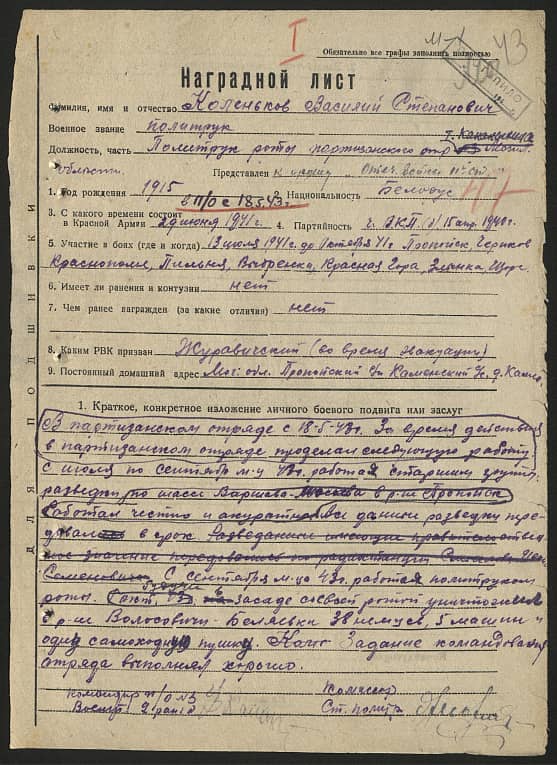 I
43
Обязательно все графы заполнить полностью
Наградной лист
Фамилия, имя и отчество Коленьков Василий Степанович
Военное звание политрук
Должность, часть Политрук роты партизанского отр Могил.
области.
Представлен к ордену Отеч. войны
1. Год рождения 1915 в п/о с 18.5.43г. 2. Национальность белорус
3. С какого времени состоит
в Красной Армии 2 июня 1941г. 4. Партийность
5. Участие в боях (где и когда) 13 июля 1941г. до 41г. Пропойск, Чериков
Краснополье, Выдренка, Красная Гора, Злынка
6. Имеет ли ранения и контузии нет
7. Чем ранее награжден (за какие отличия) нет
8. Каким РВК призван Журавичский (во время эвакуации)
9. Постоянный домашний адрес Мог. обл. Пропойский Каменский
1. Краткое, конкретное изложение личного боевого подвига или заслуг
В партизанском отряде с 18-5-43г. За время действия
в партизанском отряде проделал следующую работу
с июля по сентябрь м-ц 43г. работая старшим групп.
разведки по шасси Варшава-Москва в р-не Пропойск
Работал честно и акуратно. Все данные разведки пре-
давал в срок. Разведданные имеющие
значение передовались по радиостанции
Семеновича. С сентября м-ца 43г. работая политруком
роты. 43 в засаде со своей ротой уничтожил
в р-не Волосовичи-Беляевка 38 немцев, 3 машины и
одну самоходную пушку. Задание командования
отряда выполнял хорошо.
Командир п/о №3 Комиссар
Ст. политр.
ДЛЯ ПОДШИВКИ